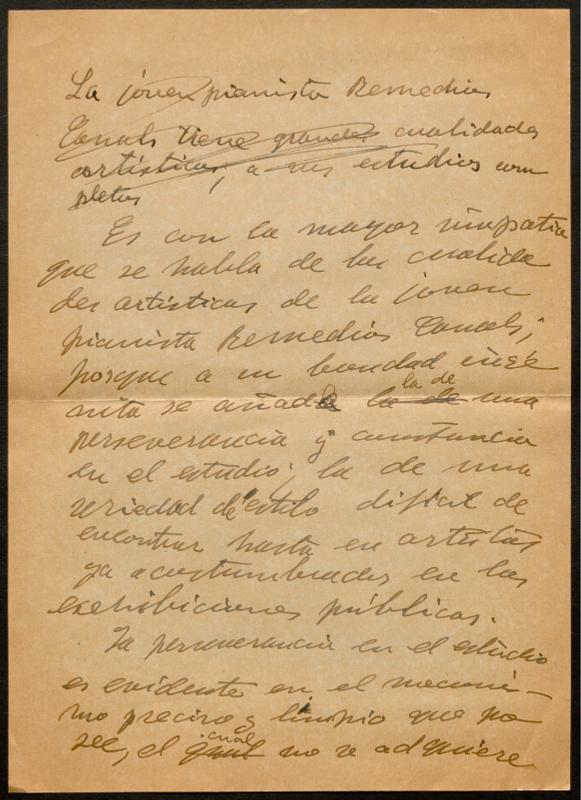 La joven pianista Remedios
Canals tiene grandes cualidades
artísticas, a sus estudios com
pletos
Es con la mayor simpatia
que se habla de las cualida
des artísticas de la joven
pianista Remedios Canals;
porque a su bondad ingé
nita se añade la de
la de una
perseverancia y constancia
en el estudio; la de una
seriedad de estilo dificil de
encontrar hasta en artistas
ya acostumbrados en las
exehibiciones públicas.
La perseverancia en el estudio
es evidente en el mecanis-
mo preciso y limpio que po
see, el cual
no se adquiere